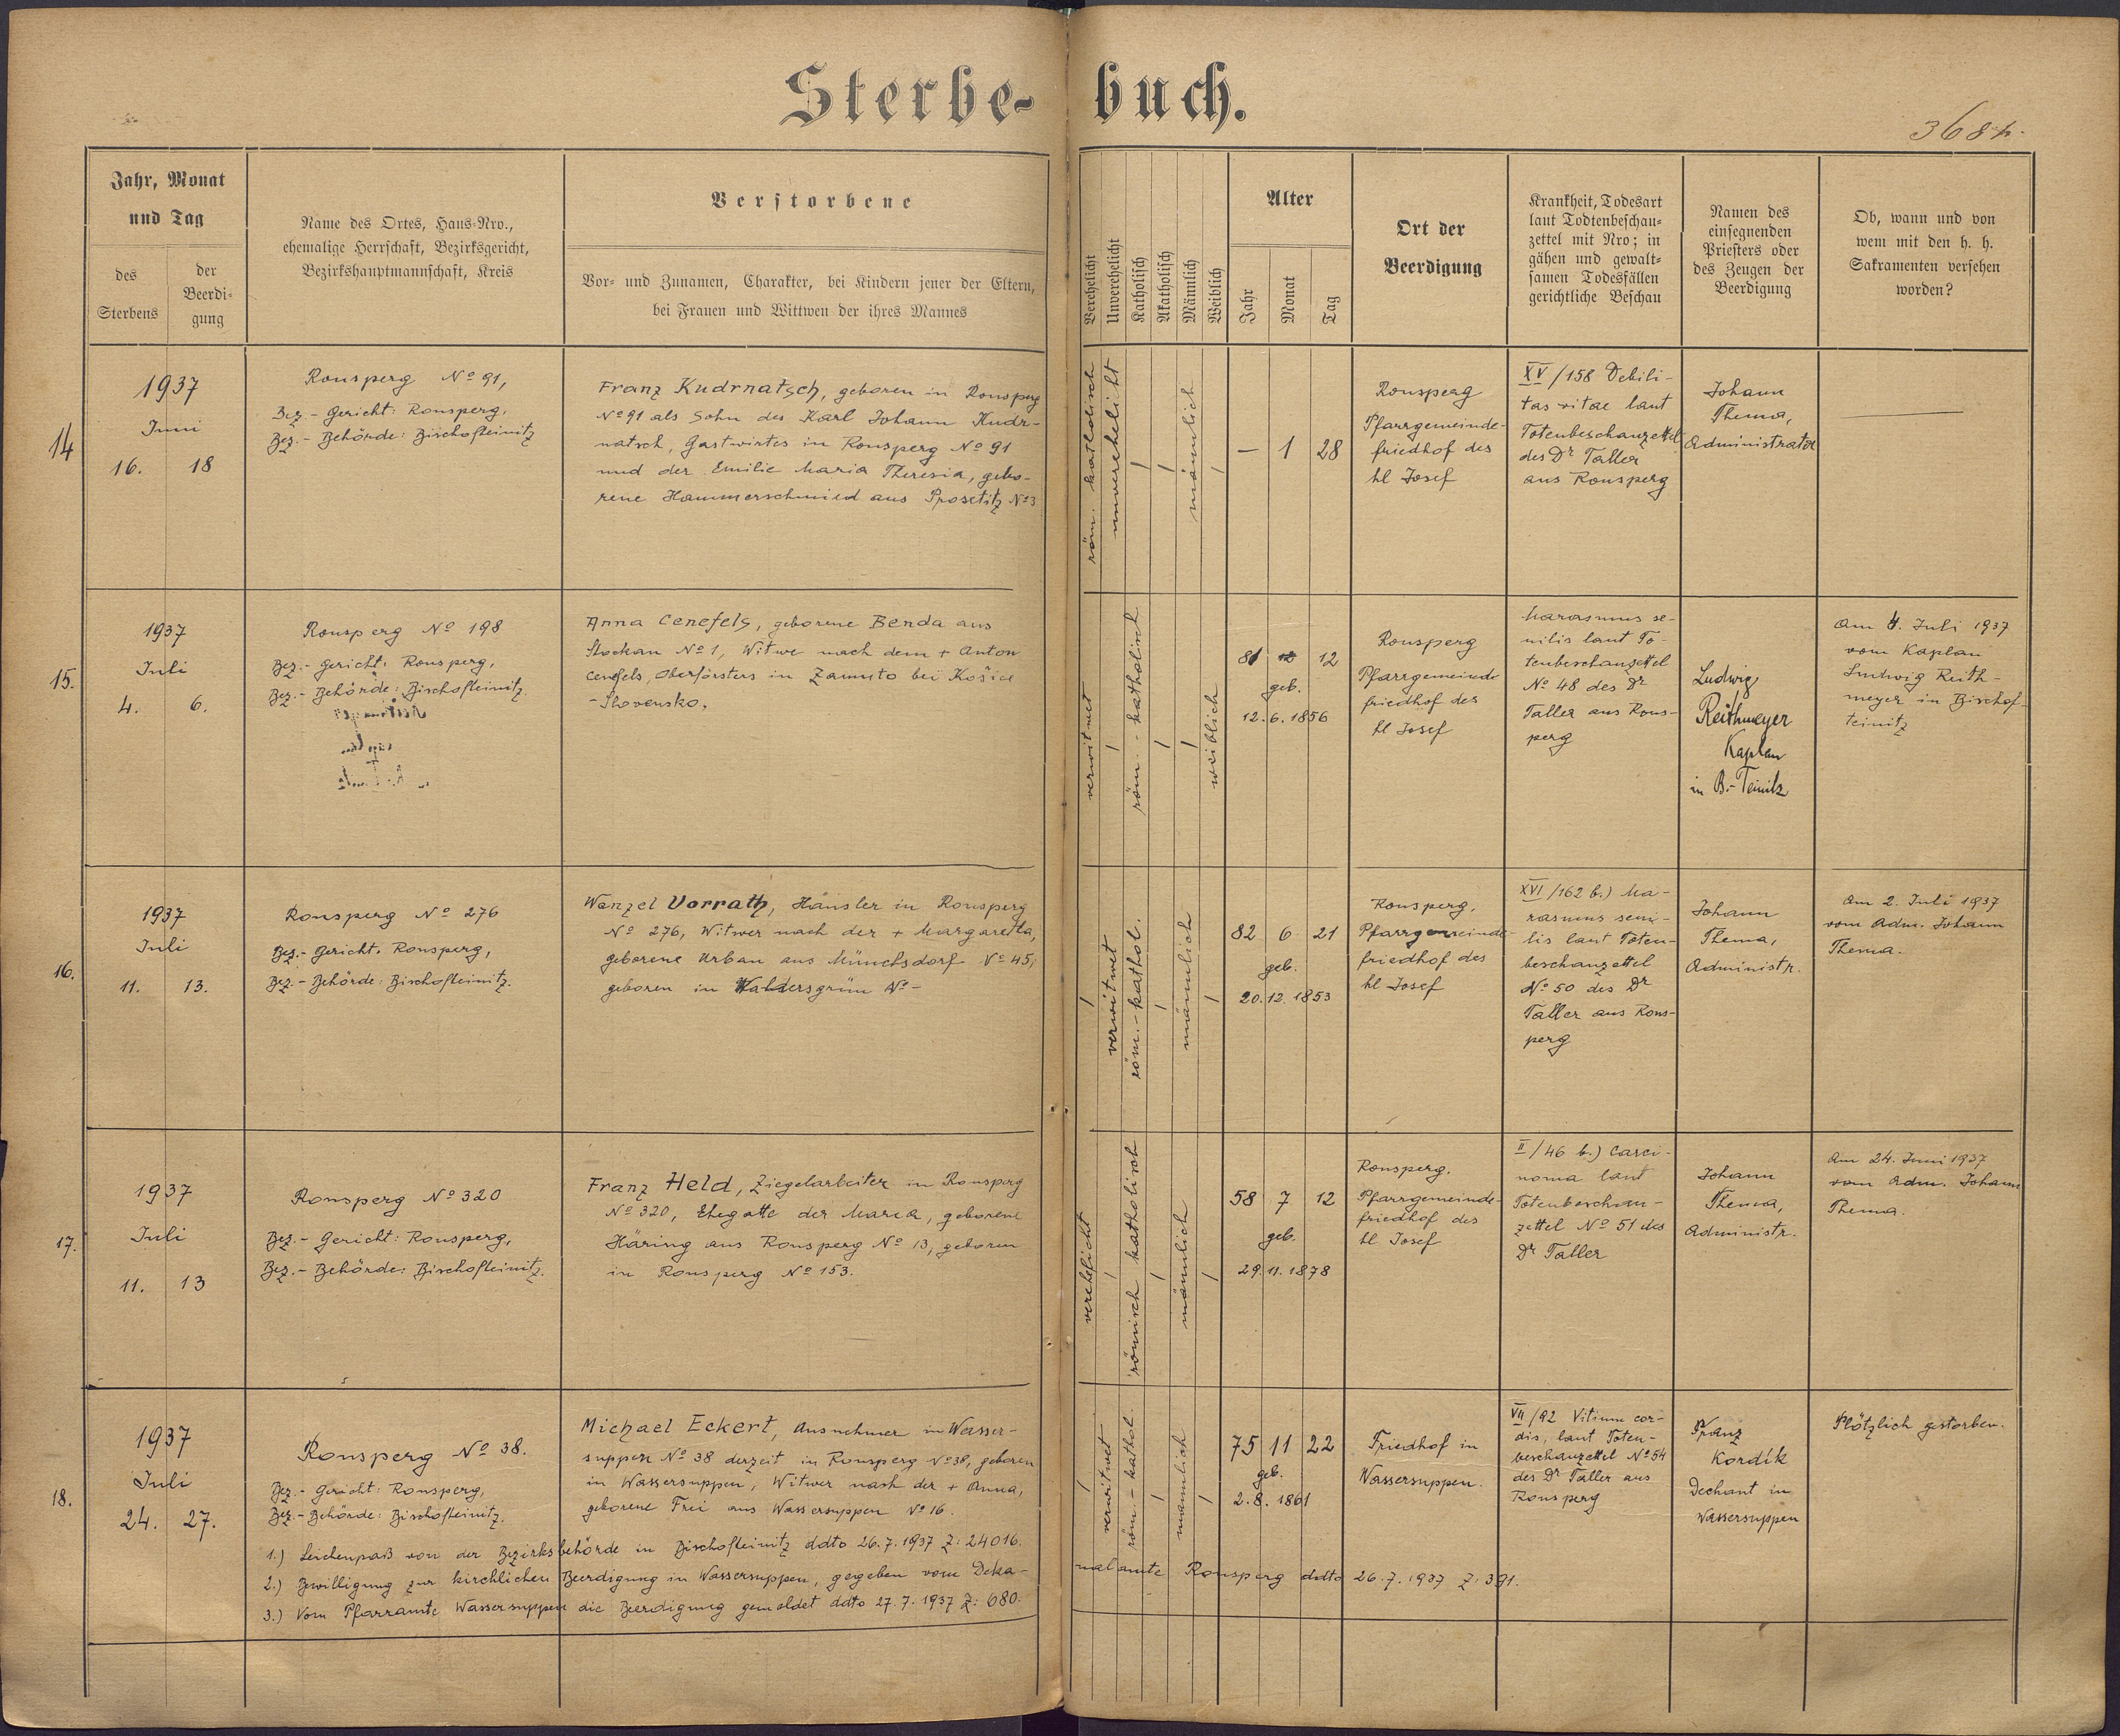 Sterbe-buch.
368 h.
Jahr, Monat
und Tag
des
Sterbens
der
Beerdi-
gung
Name des Ortes, Haus-Nro.,
ehemalige Herrschaft, Bezirksgericht,
Bezirkshauptmannschaft, Kreis
Verstorbene
Vor- und Zunamen, Charakter, bei Kindern jener der Eltern,
bei Frauen und Wittwen der ihres Mannes
Verehelicht
Unverehelicht
Katholisch
Akatholisch
Männlich
Weiblich
Alter
Jahr
Monat
Tag
Ort der
Beerdigung
Krankheit, Todesart
laut Todtenbeschau-
zettel mit Nro; in
gähen und gewalt-
samen Todesfällen
gerichtliche Beschau
Namen des
einsegnenden
Priesters oder
des Zeugen der
Beerdigung
Ob, wann und von
wem mit den h. h.
Sakramenten versehen
worden?
14
1937
Juni
16. 18
Ronsperg No 91,
Bez.-Gericht: Ronsperg,
Bez.-Behörde: Bischofteinitz
Franz Kudrnatsch, geboren in Ronsperg
No 91 als Sohn des Karl Johann Kudr-
natsch, Gastwirtes in Ronsperg No 91
und der Emilie Maria Theresia, gebo-
rene Hammerschmied aus Prosetitz No 3
röm. katholisch
unverehelicht
männlich
— 1 28
Ronsperg
Pfarrgemeinde-
friedhof des
hl Josef
XV/158 Debili-
tas vitae laut
Totenbeschauzettel
des Dr Taller
aus Ronsperg
Johann
Thema,
Administrator
15.
1937
Juli
4. 6.
Ronsperg No 198
Bez.-Gericht: Ronsperg,
Bez.-Behörde: Bischofteinitz.
Anna Cenefels, geborene Benda aus
Stockau No 1, Witwe nach dem + Anton
Cenefels, Oberförsters in Zamuto bei Košice
-Slovensko.
verwitwet
röm.-katholisch
weiblich
81 12
geb.
12.6.1856
Ronsperg
Pfarrgemeinde
friedhof des
hl Josef
Marasmus se-
nilis laut To-
tenbeschauzettel
No 48 des Dr
Taller aus Rons-
perg
Ludwig
Reithmeyer
Kaplan
in B.-Teinitz
Am 4. Juli 1937
vom Kaplan
Ludwig Reith-
meyer in Bischof-
teinitz
16.
1937
Juli
11. 13.
Ronsperg No 276
Bez.-Gericht. Ronsperg,
Bez.-Behörde: Bischofteinitz.
Wenzel Vorrath, Häusler in Ronsperg
No 276, Witwer nach der + Margareta,
geborene Urban aus Münchsdorf No 45,
geboren in Waldersgrün No -
verwitwet
röm.-kathol.
männlich
82 6 21
geb.
20.12.1853
Ronsperg,
Pfarrgemeinde-
friedhof des
hl Josef
XVI/162 b.) Ma-
rasmus seni-
lis laut Toten-
beschauzettel
No 50 des Dr
Taller aus Rons-
perg
Johann
Thema,
Administr.
Am 2. Juli 1937
vom Adm. Johann
Thema.
17.
1937
Juli
11. 13
Ronsperg No 320
Bez.-Gericht: Ronsperg,
Bez.-Behörde: Bischofteinitz.
Franz Held, Ziegelarbeiter in Ronsperg
No 320, Ehegatte der Maria, geborene
Häring aus Ronsperg No 13, geboren
in Ronsperg No 153.
verehelicht
römisch katholisch
männlich
58 7 12
geb.
29.11.1878
Ronsperg.
Pfarrgemeinde-
friedhof des
hl. Josef
II/46 b.) Carci-
noma laut
Totenbeschau-
zettel No 51 des
Dr Taller
Johann
Thema,
Administr.
Am 24. Juni 1937
vom Adm. Johann
Thema.
18.
1937
Juli
24. 27.
Ronsperg No 38.
Bez.-Gericht: Ronsperg,
Bez.-Behörde: Bischofteinitz.
Michael Eckert, Ausnehmer in Wasser-
suppen No 38 derzeit in Ronsperg No 38, geboren
in Wassersuppen, Witwer nach der + Anna,
geborene Frei aus Wassersuppen No 16.
verwitwet
röm.-kathol.
männlich
75 11 22
geb.
2.8.1861
Friedhof in
Wassersuppen.
VII/92 Vitium cor-
dis, laut Toten-
beschauzettel No 54
des Dr Taller aus
Ronsperg
Franz
Kordík
Dechant in
Wassersuppen
Plötzlich gestorben.
1.) Leichenpaß von der Bezirksbehörde in Bischofteinitz ddto 26.7.1937 Z: 24016.
2.) Bewilligung zur kirchlichen Beerdigung in Wassersuppen, gegeben vom Deka-
nalamte Ronsperg ddto 26.7.1937 Z: 391.
3.) Vom Pfarramte Wassersuppen die Beerdigung gemeldet ddto 27.7.1937 Z: 680.